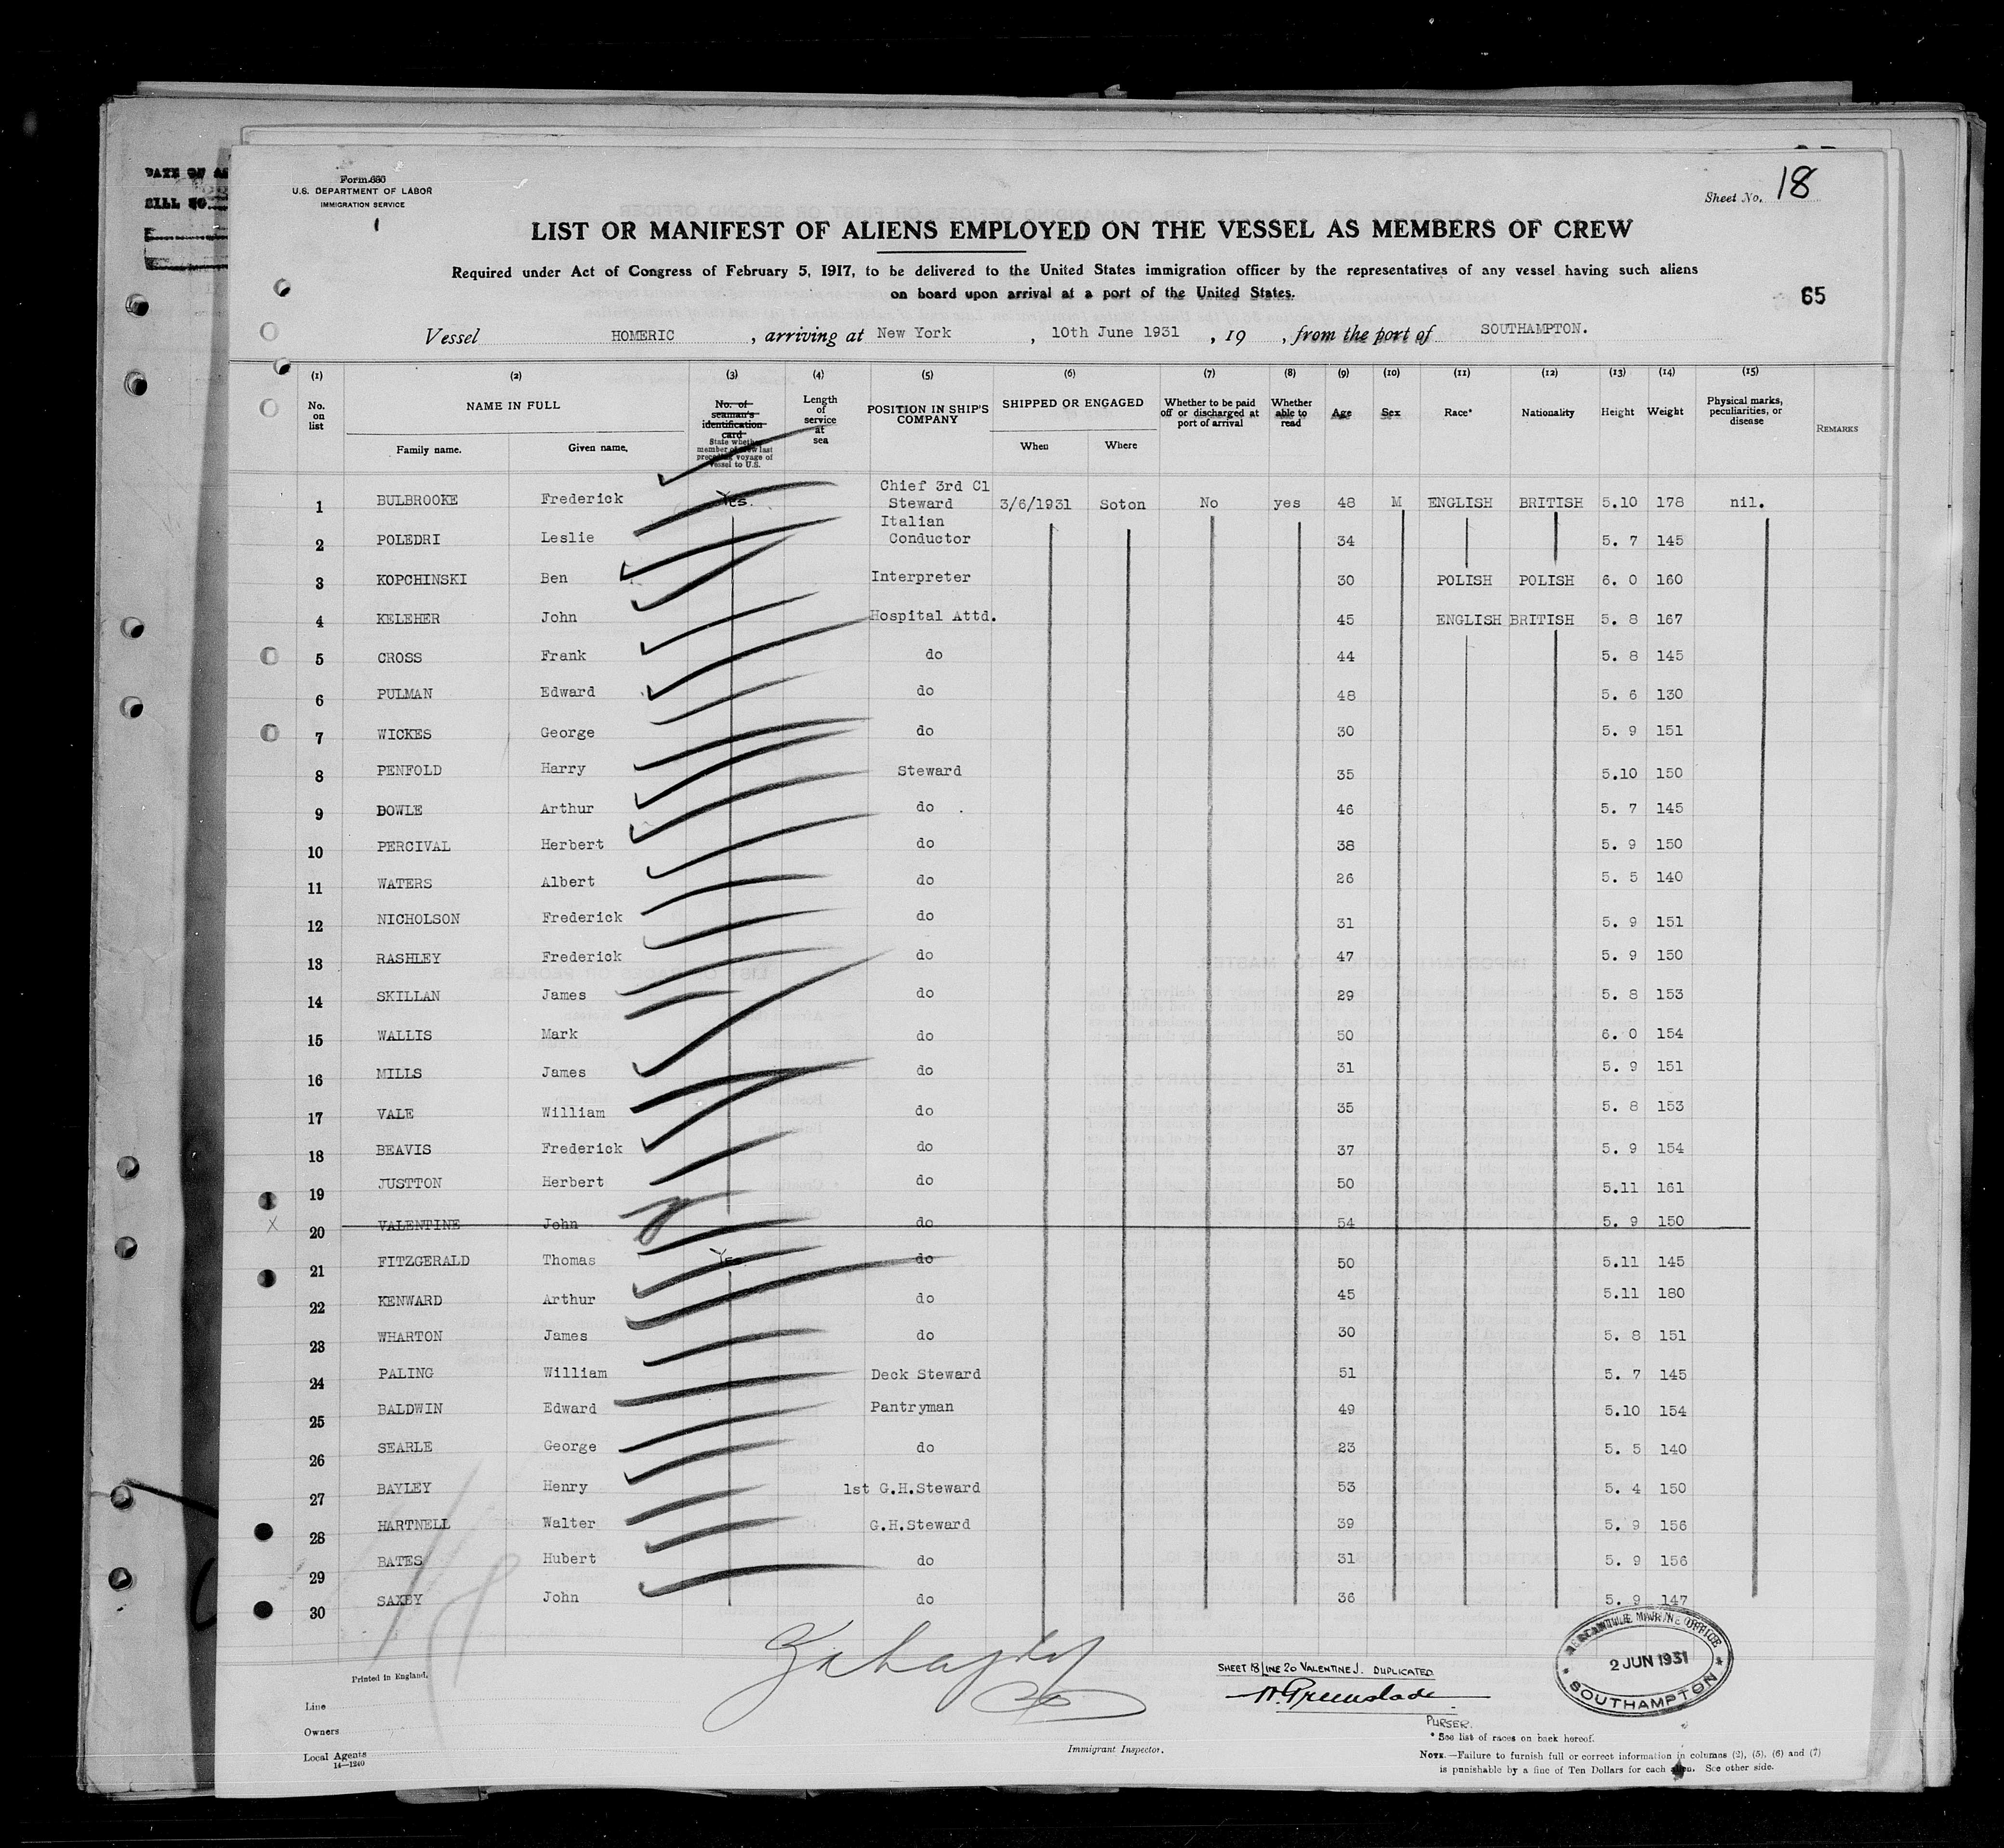 DATE OF
BILL NO.
Form 686
U.S. DEPARTMENT OF LABOR
IMMIGRATION SERVICE
Sheet No. 18
LIST OR MANIFEST OF ALIENS EMPLOYED ON THE VESSEL AS MEMBERS OF CREW
Required under Act of Congress of February 5, 1917, to be delivered to the United States immigration officer by the representatives of any vessel having such aliens
on board upon arrival at a port of the United States.
65
Vessel HOMERIC , arriving at New York , 10th June 1931 , 19 , from the port of SOUTHAMPTON.
(1) (2) (3) (4) (5) (6) (7) (8) (9) (10) (11) (12) (13) (14) (15)
No. on list
NAME IN FULL
Family name. Given name.
No. of seaman's identification card
State whether member of crew last preceding voyage of vessel to U.S.
Length of service at sea
POSITION IN SHIP'S COMPANY
SHIPPED OR ENGAGED
When Where
Whether to be paid off or discharged at port of arrival
Whether able to read
Age Sex Race* Nationality Height Weight
Physical marks, peculiarities, or disease
REMARKS
1 BULBROOKE Frederick Yes. Chief 3rd Cl Steward 3/6/1931 Soton No yes 48 M ENGLISH BRITISH 5.10 178 nil.
2 POLEDRI Leslie Italian Conductor 34 5. 7 145
3 KOPCHINSKI Ben Interpreter 30 POLISH POLISH 6. 0 160
4 KELEHER John Hospital Attd. 45 ENGLISH BRITISH 5. 8 167
5 CROSS Frank do 44 5. 8 145
6 PULMAN Edward do 48 5. 6 130
7 WICKES George do 30 5. 9 151
8 PENFOLD Harry Steward 35 5.10 150
9 DOWLE Arthur do 46 5. 7 145
10 PERCIVAL Herbert do 38 5. 9 150
11 WATERS Albert do 26 5. 5 140
12 NICHOLSON Frederick do 31 5. 9 151
13 RASHLEY Frederick do 47 5. 9 150
14 SKILLAN James do 29 5. 8 153
15 WALLIS Mark do 50 6. 0 154
16 MILLS James do 31 5. 9 151
17 VALE William do 35 5. 8 153
18 BEAVIS Frederick do 37 5. 9 154
19 JUSTTON Herbert do 50 5.11 161
X 20 VALENTINE John do 54 5. 9 150
21 FITZGERALD Thomas Yes do 50 5.11 145
22 KENWARD Arthur do 45 5.11 180
23 WHARTON James do 30 5. 8 151
24 PALING William Deck Steward 51 5. 7 145
25 BALDWIN Edward Pantryman 49 5.10 154
26 SEARLE George do 23 5. 5 140
27 BAYLEY Henry 1st G.H.Steward 53 5. 4 150
28 HARTNELL Walter G.H.Steward 39 5. 9 156
29 BATES Hubert do 31 5. 9 156
30 SAXBY John do 36 5. 9 147
18
Printed in England.
SHEET 18 LINE 20 VALENTINE J. DUPLICATED
H. Greenslade
PURSER.
MERCANTILE MARINE OFFICE
2 JUN 1931
SOUTHAMPTON
Line
Owners
Local Agents
14—1240
Immigrant Inspector.
* See list of races on back hereof.
NOTE.—Failure to furnish full or correct information in columns (2), (5), (6) and (7)
is punishable by a fine of Ten Dollars for each alien. See other side.